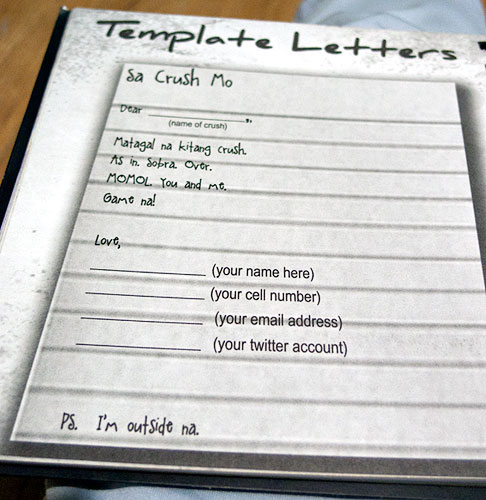 Template Letters
Sa Crush Mo
Dear ____________,
(name of crush)
Matagal na kitang crush.
As in. Sobra. Over.
MOMOL. You and me.
Game na!
Love,
____________ (your name here)
____________ (your cell number)
____________ (your email address)
____________ (your twitter account)
PS. I'm outside na.